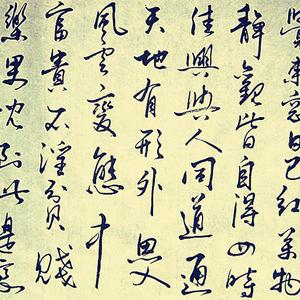 覺東窗日已紅萬物
靜觀皆自得四時
佳興與人同道通
天地有形外思入
風雲變態中
富貴不淫貧賤
樂男兒到此是豪